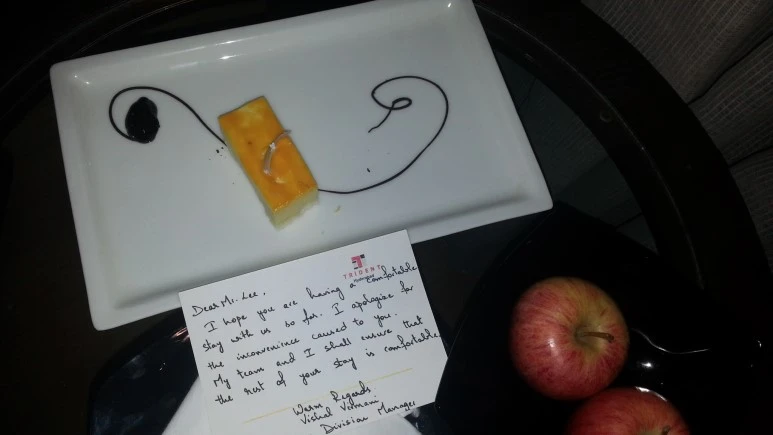 TRIDENT
Dear Mr. Lee,
I hope you are having a comfortable
stay with us so far. I apologise for
the inconvenience caused to you.
My team and I shall ensure that
the rest of your stay is comfortable
Warm Regards
Vishal
Division Manager